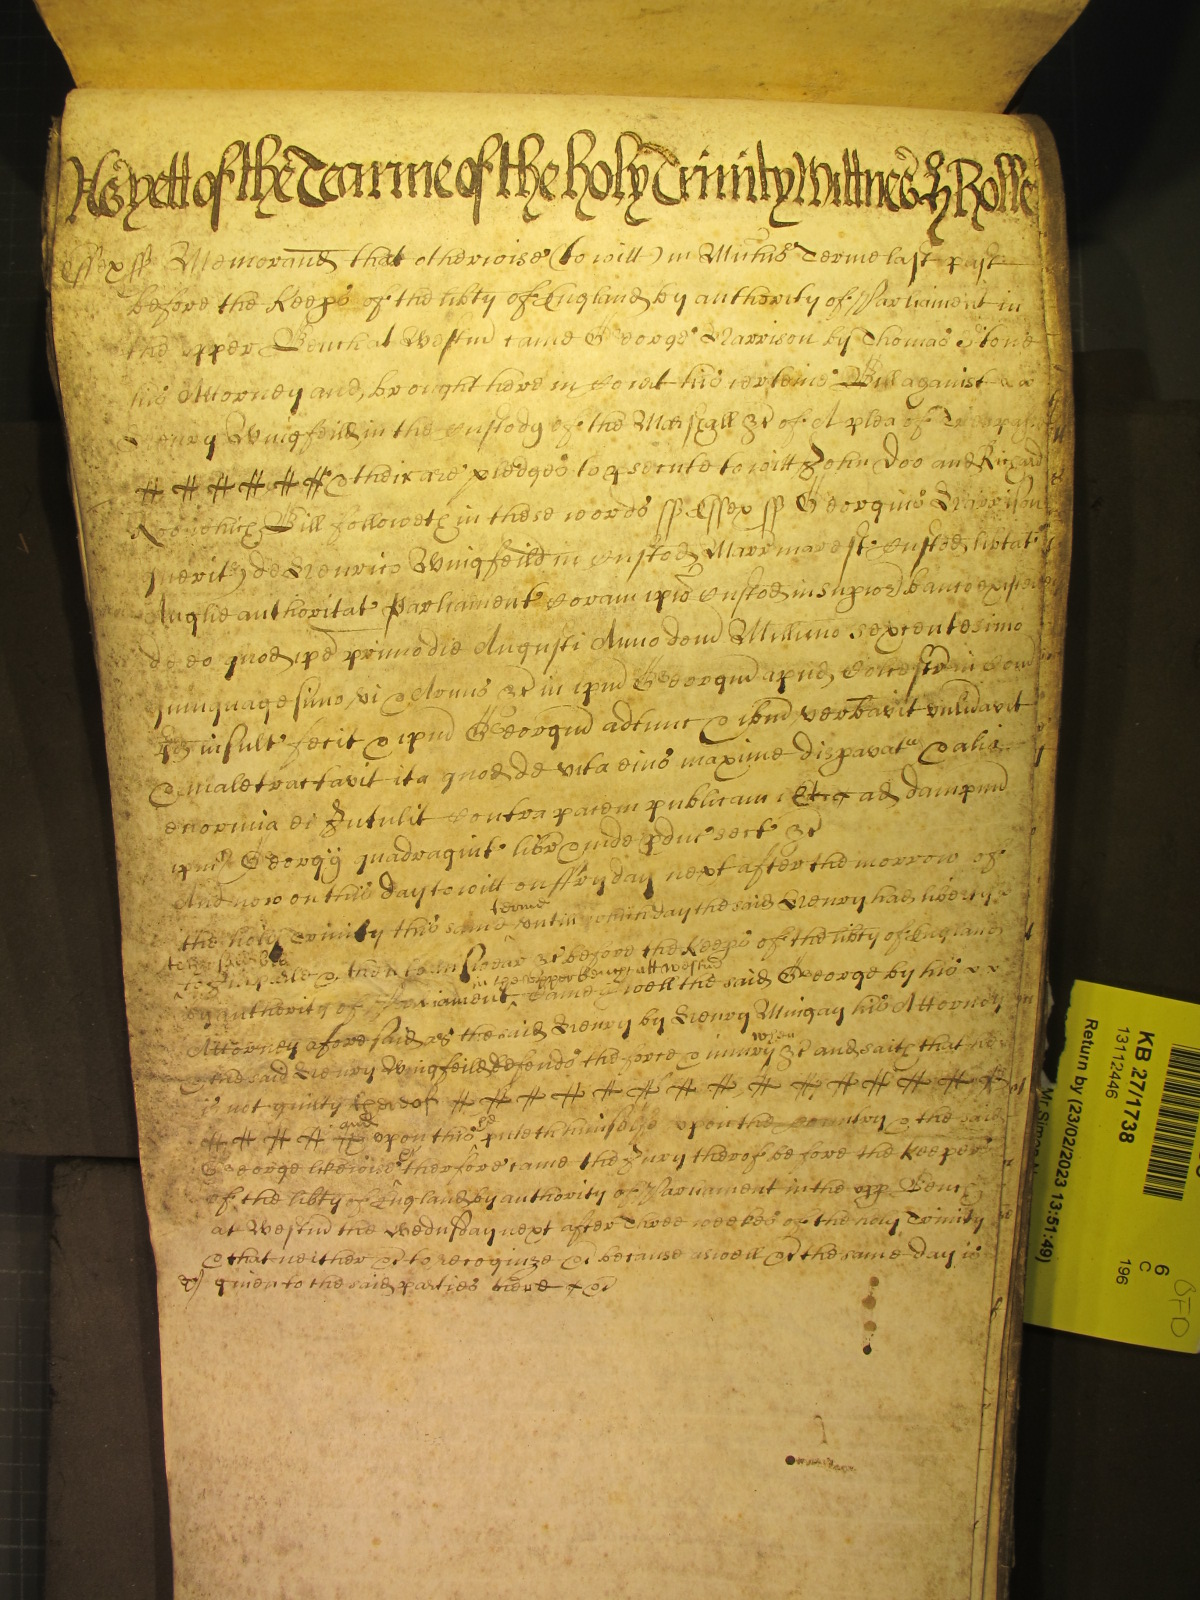 As yett of the Tearme of the holy Trinity Wittnes H Rolle
Essex ss Memorand that otherwise (to witt) in Michis Terme last past
before the Keeps of the libty of England by authority of Parliament in
the upper Bench at Westm came George Harrison by Thomas Stone
his Attorney and brought here in Court his certeine Bill against
Henry Wingfeild in the Custody of the Marshall &c of A plea of Trespasse
& their are pledges to psecute to witt John Doo and Richard
Roo which Bill followeth in these words ss Essex ss Georgius Harrison
querit de Henrico Wingfeild in Custod Marr marest Custod libtat
Anglie authoritat Parliament Coram ipis Custod in supiori banco existen
de eo quod ipe primo die Augusti Anno dom Millimo sexcentesimo
quinquagesimo vi & Armis &c in ipm Georgm apud Colcestr in Com
pd insult fecit & ipm Georgm adtunc & ibm verbavit vulnavit
& maletractavit ita quod de vita eius maxime dispavat & alia
enormia ei Intulit Contra pacem publicam &c ad dampnm
ipius Georgij quadragint libr & inde pduc sect &c
And now on this day to witt on ffryday next after the morrow of
the holy Trinity this same terme untill which day the said Henry had liberty
to Imparle & then to answear &c before the Keeps of the libty of England
by authority of Parliament in the upper Bench att Westm came as well the said George by his
Attorney aforesaid as the said Henry by Henry Mingay his Attorney
& the said Henry Wingfeild defends the force & iniury when &c and saith that he
is not guilty thereof
and upon this he puteth himselfe upon the Country & the said
George likewise &c therfore came the Jury therof before the Keepers
of the libty of England by authority of Parliament in the upp Bench
at Westm the Wednsday next after Three weekes of the holy Trinity
& that neither &c to recognize &c because aswell &c the same day is
given to the said parties there &c
KB 27/1738
13112446
Return by (23/02/2023 13:51:49)
6
C
196